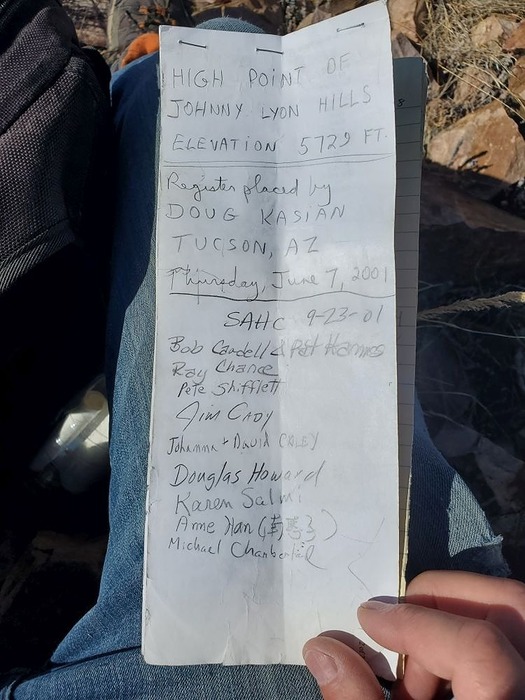 HIGH POINT OF
JOHNNY LYON HILLS
ELEVATION 5729 FT.
Register placed by
DOUG KASIAN
TUCSON, AZ
Thursday, June 7, 2001
SAHC 9-23-01
Bob Cardell & Pat Harmes
Ray Chance
Pete Shifflett
Jim CADY
Johanna + David
Douglas Howard
Karen Salmi
Anne Han
Michael